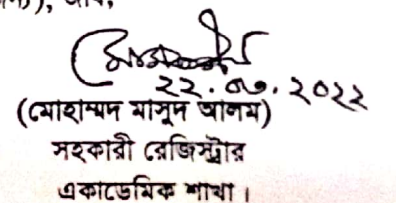 ২২.০৬.২০২২
(মোহাম্মদ মাসুদ আলম)
সহকারী রেজিস্ট্রার
একাডেমিক শাখা।